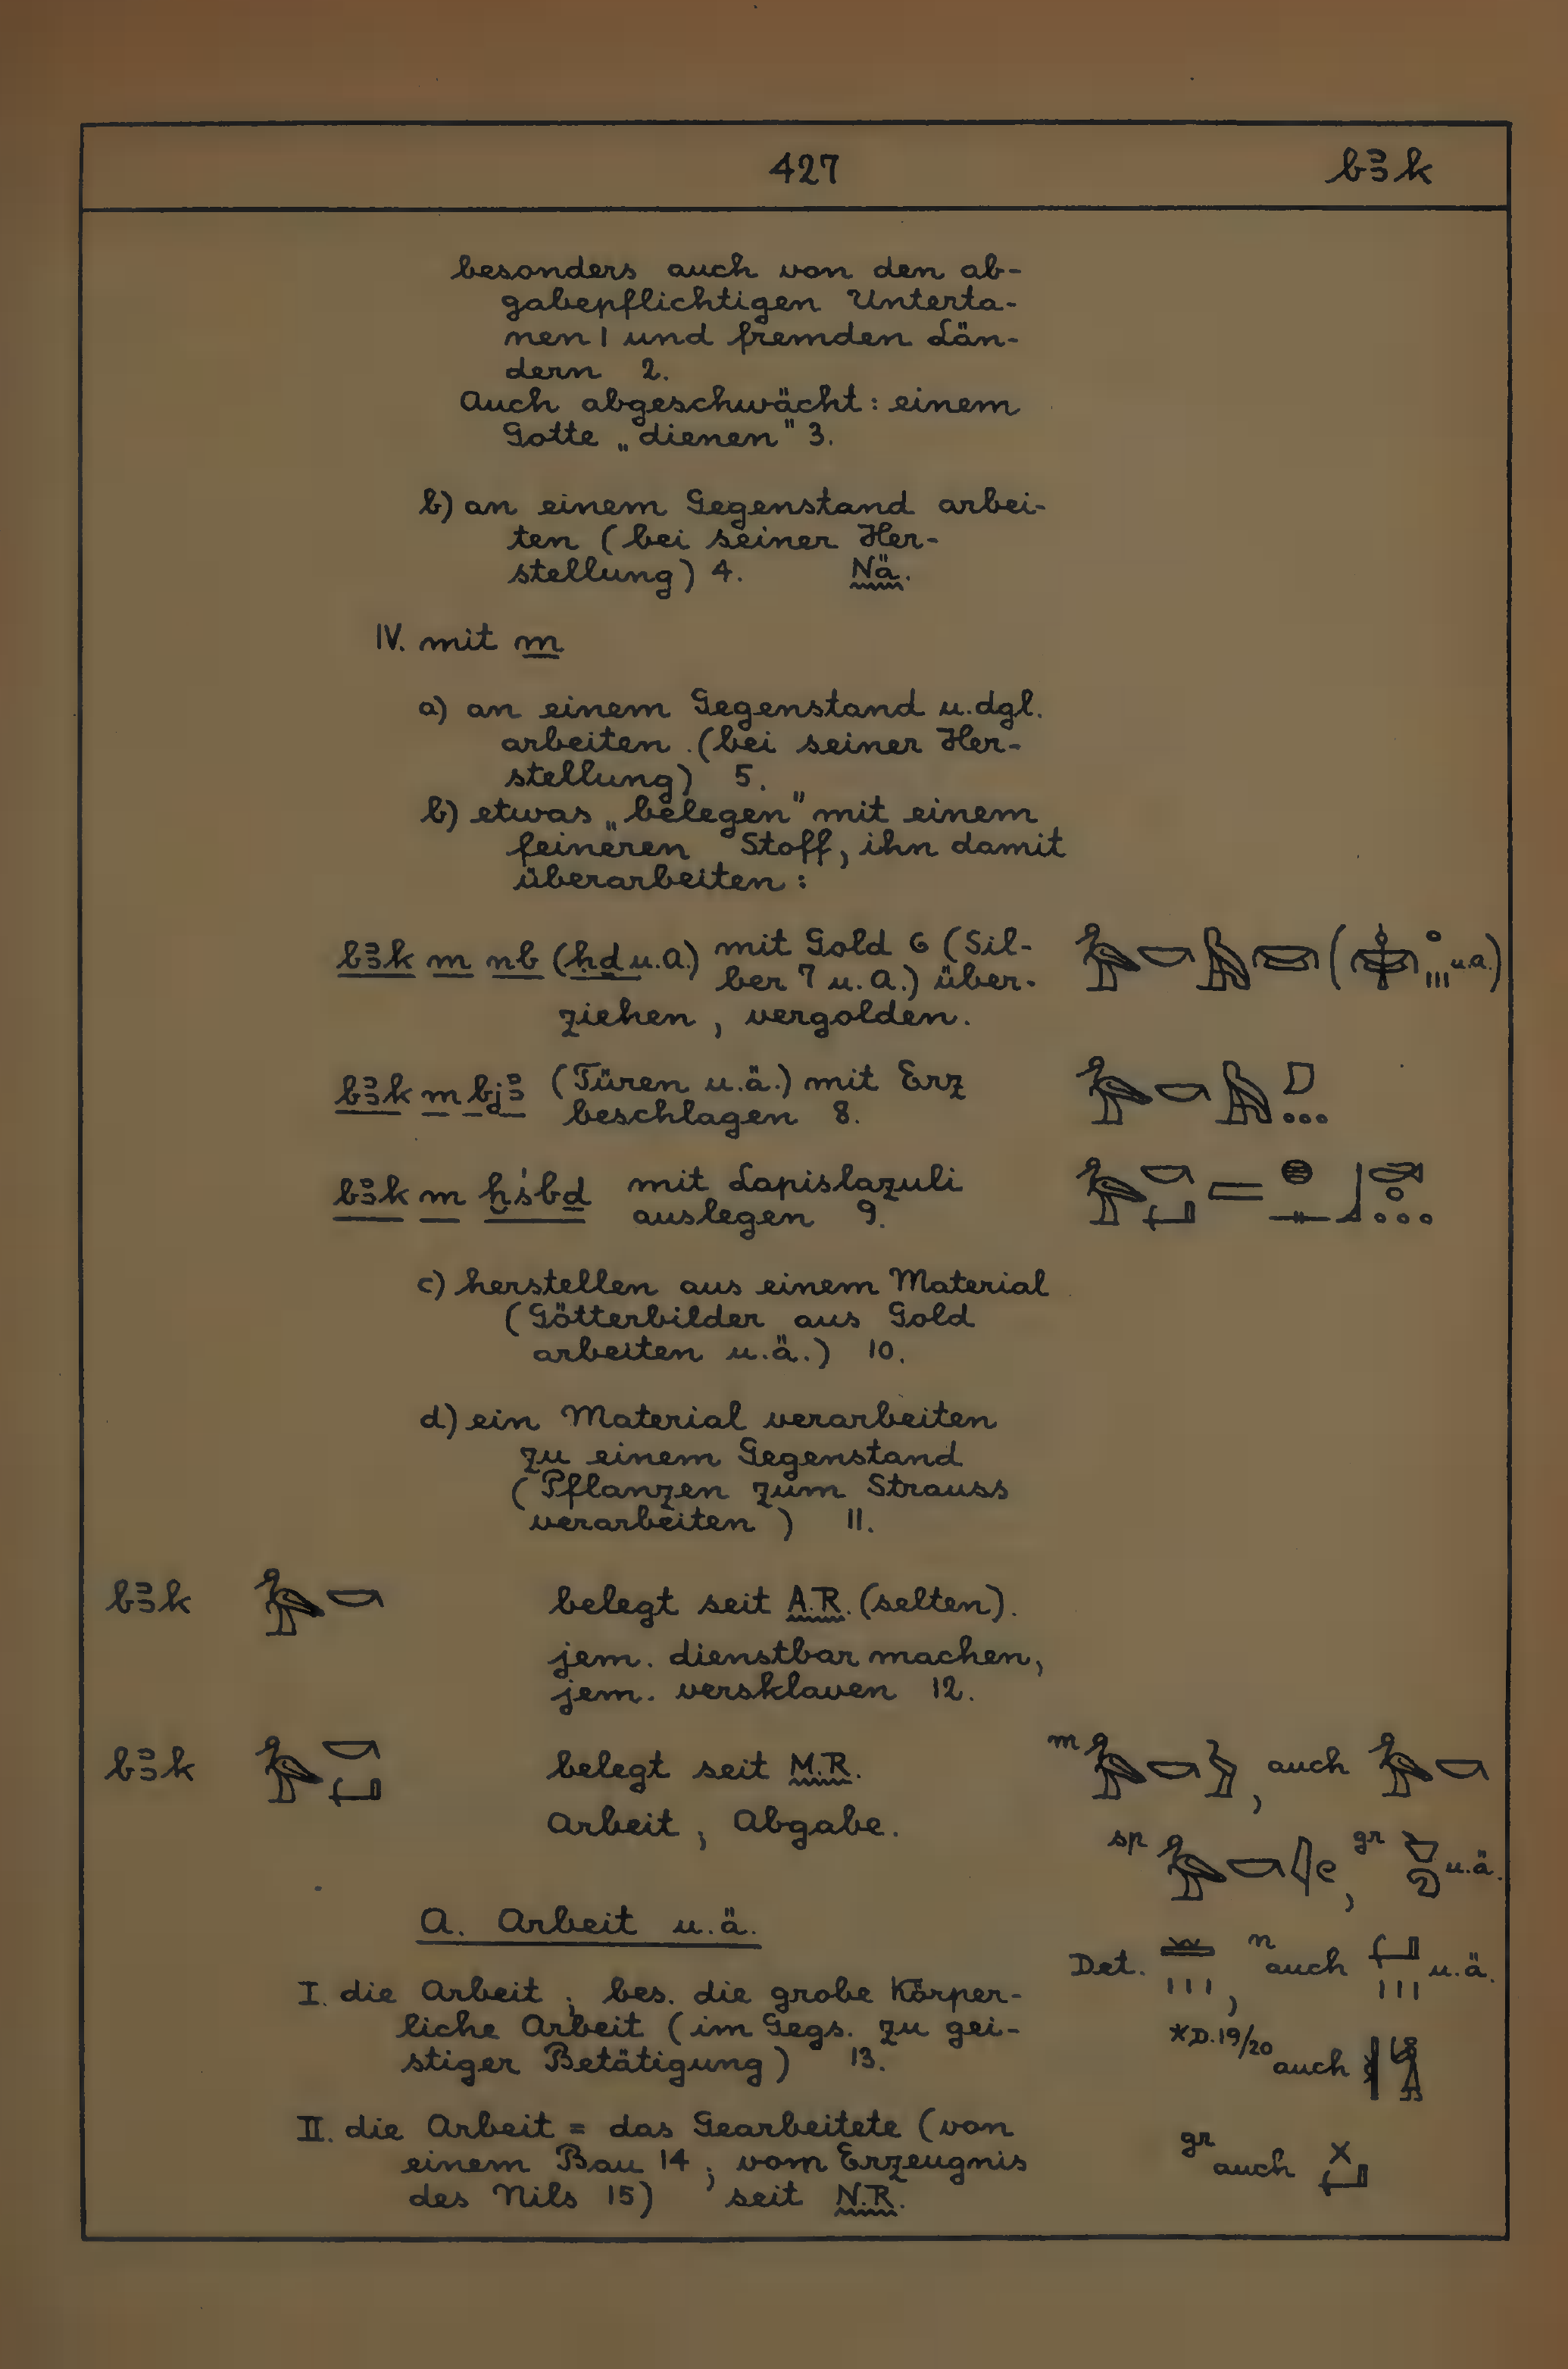 427 bꜣk
besonders auch von den ab-
gabepflichtigen Unterta-
nen 1 und fremden Län-
dern 2.
Auch abgeschwächt: einem
Gotte „dienen" 3.
b) an einem Gegenstand arbei-
ten (bei seiner Her-
stellung) 4. Nä.
IV. mit m
a) an einem Gegenstand u.dgl.
arbeiten (bei seiner Her-
stellung) 5.
b) etwas „belegen" mit einem
feineren Stoff, ihn damit
überarbeiten:
bꜣk m nb (ḥḏ u.A.) mit Gold 6 (Sil-
ber 7 u.A.) über-
ziehen, vergolden.
u.A.)
bꜣk m bjꜣ (Türen u.ä.) mit Erz
beschlagen 8.
bꜣk m ḫśbḏ mit Lapislazuli
auslegen 9.
c) herstellen aus einem Material
(Götterbilder aus Gold
arbeiten u.ä.) 10.
d) ein Material verarbeiten
zu einem Gegenstand
(Pflanzen zum Strauss
verarbeiten) 11.
bꜣk belegt seit A.R. (selten).
jem. dienstbar machen,
jem. versklaven 12.
bꜣk belegt seit M.R.
Arbeit; Abgabe.
m , auch
sp , gr u.ä.
A. Arbeit u.ä.
Det. , n auch u.ä.
I. die Arbeit; bes. die grobe Körper-
liche Arbeit (im Gegs. zu gei-
stiger Betätigung) 13.
*D.19/20 auch
II. die Arbeit = das Gearbeitete (von
einem Bau 14; vom Erzeugnis
des Nils 15) seit N.R.
gr auch